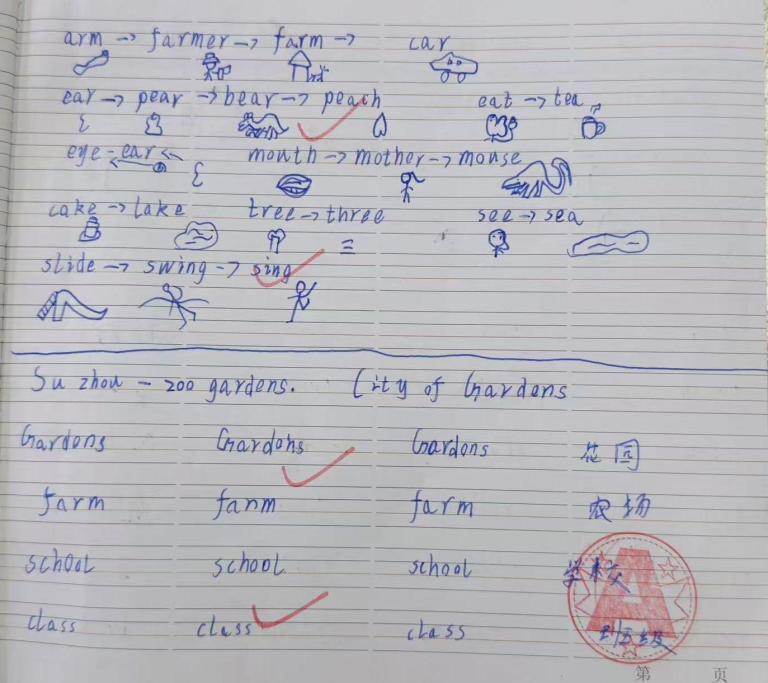 arm → farmer → farm → car
ear → pear → bear → peach eat → tea
eye - ear ← mouth → mother → mouse
cake → lake tree → three see → sea
三
slide → swing → sing
Su zhou - 200 gardens. City of Gardens
Gardens Gardens Gardens 花园
farm farm farm 农场
school school school 学校
class class class 班级
A
第 页